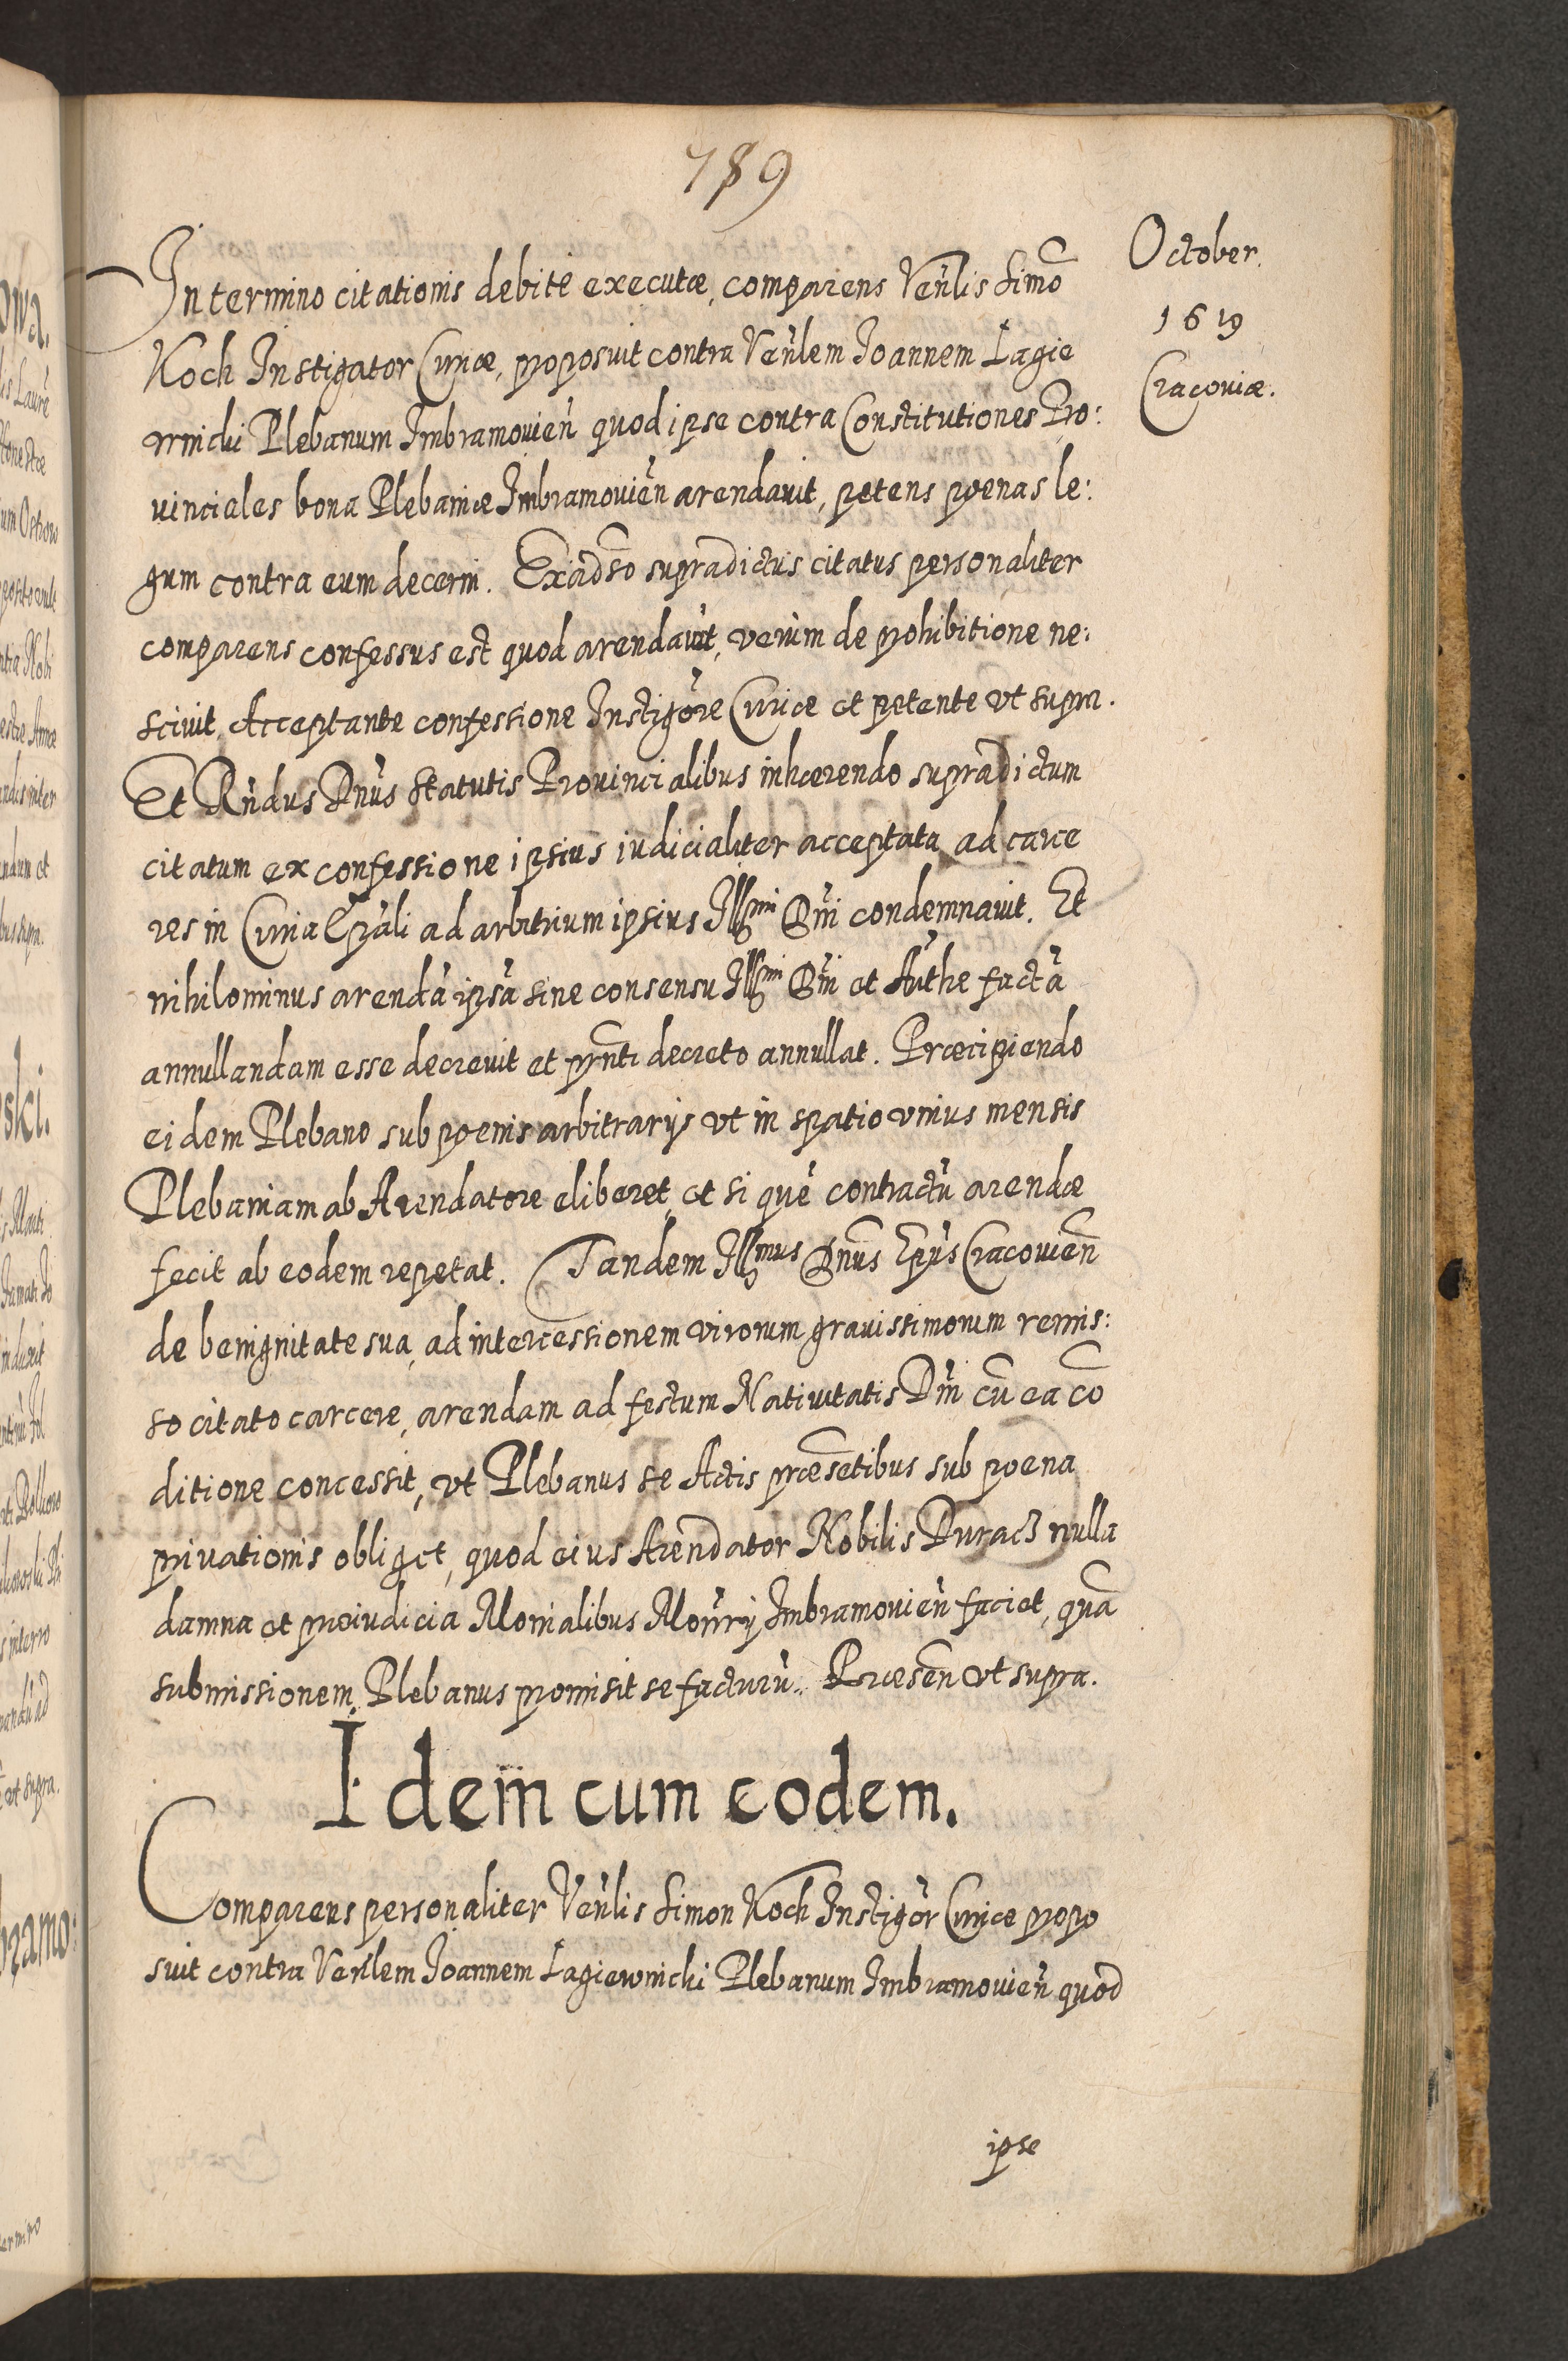 789
October.
1619
Cracoviæ.
In termino citationis debitè executæ, comparens Veñlis Simō
Koch Instigator Curiæ, proposuit contra Veñlem Joannem Łagie
wnicki Plebanum Imbramovieñ quod ipse contra Constitutiones Pro:
uinciales bona Plebaniæ Imbramovieñ arendauit, petens poenas le:
gum contra eum decerni. Exadso supradictus citatus personaliter
comparens confessus est quod arendauit, verùm de prohibitione ne:
sciuit, Acceptante confessione Instigõre Curiæ et petente vt supra.
Et Rñdus Dñus Statutis Prouincialibus inhærendo supradictum
citatum ex confessione ipsius iudicialiter acceptata ad carce
res in Curia Epãli ad arbitrium ipsius Illmi Dñi condemnauit. Et
nihilominus arendã ipsã sine consensu Illmi Dñi et Authe factã
annullandam esse decreuit et pñti decreto annullat. Præcipiendo
eidem Plebano sub poenis arbitrarijs vt in spatio vnius mensis
Plebaniam ab Arendatore eliberet, et si quẽ contractũ arendæ
fecit ab eodem repetat. Tandem Illmus Dñus Epũs Cracouieñ
de benignitate sua, ad intercessionem virorum grauissimorum remis:
so citato carcere, arendam ad festum Natiuitatis Dñi cũ ea cō
ditione concessit, vt Plebanus se Actis præsẽtibus sub poena
priuationis obliget, quod eius Arendator Nobilis Duracz nulla
damna et præiudicia Monialibus Moñrij Imbramouieñ faciet, quã
submissionem Plebanus promisit se facturũ. Præseñ vt supra.
Idem cum eodem.
Comparens personaliter Veñlis Simon Koch Instigõr Curiæ propo
suit contra Veñlem Joannem Łagiewnicki Plebanum Imbramouieñ quod
ipse